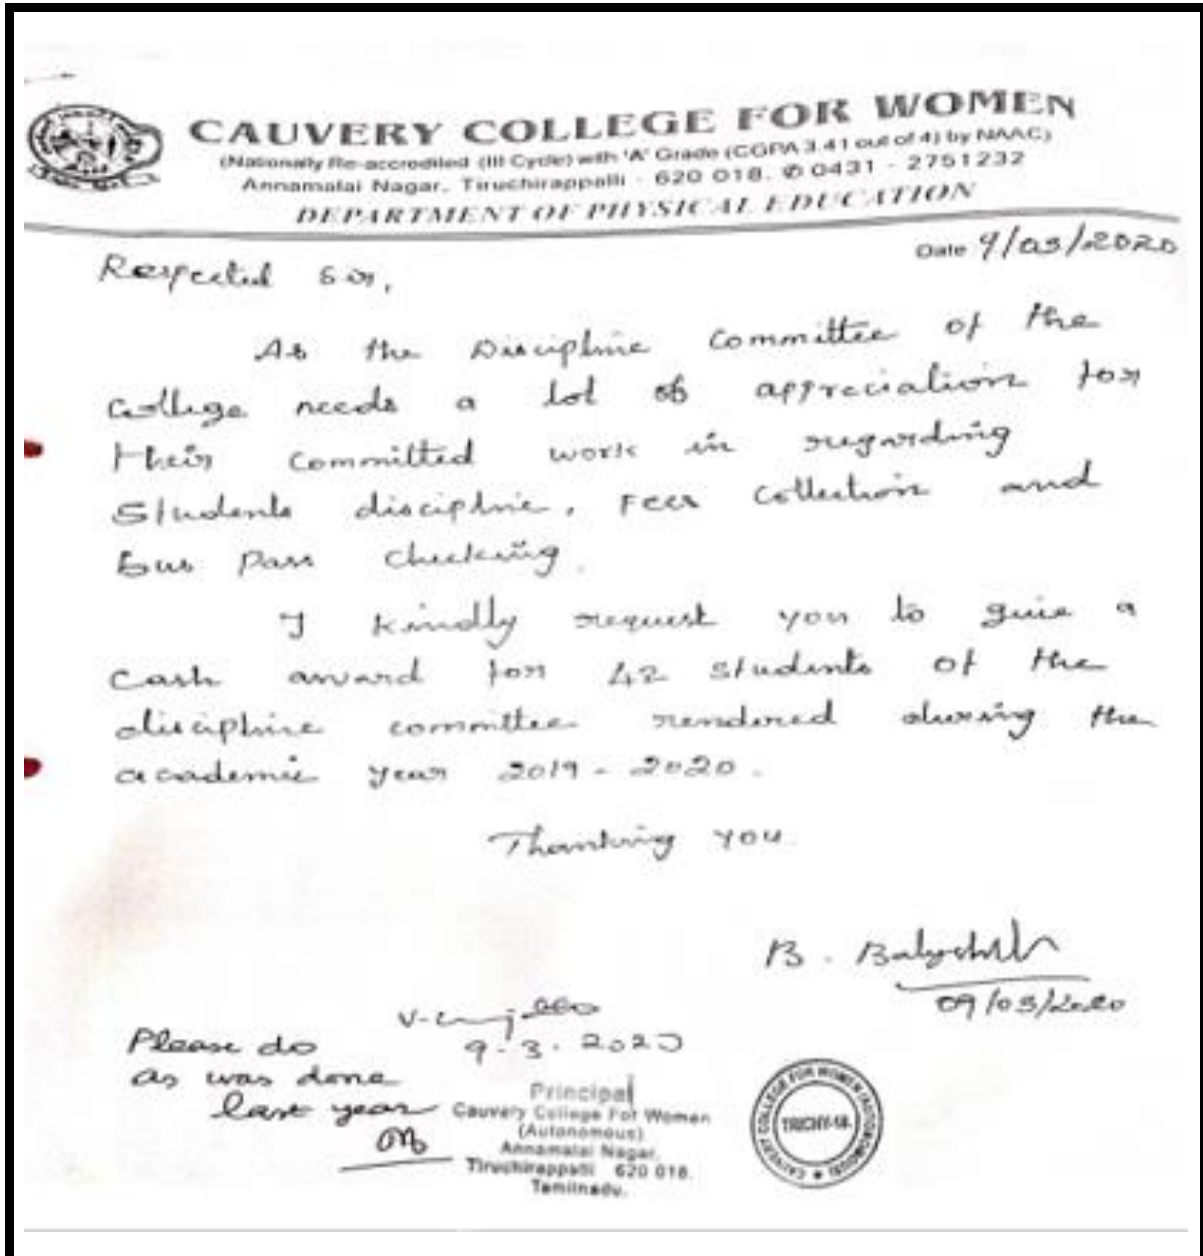 CAUVERY COLLEGE FOR WOMEN
(Nationally Re-accredited (III Cycle) with 'A' Grade (CGPA 3.41 out of 4) by NAAC)
Annamalai Nagar, Tiruchirappalli - 620 018. ✆ 0431 - 2751232
DEPARTMENT OF PHYSICAL EDUCATION
Date 9/03/2020
Respected Sir,
As the Discipline Committee of the
College needs a lot of appreciation for
their committed work in regarding
Students discipline, Fees Collection and
bus pass checking.
I kindly request you to give a
cash award for 42 students of the
discipline committee rendered during the
academic year 2019 - 2020.
Thanking you.
B.
09/03/2020
9.3.2020
Please do
as was done
last year
Principal
Cauvery College For Women
(Autonomous)
Annamalai Nagar,
Tiruchirappalli 620 018.
Tamilnadu.
CAUVERY COLLEGE FOR WOMEN (AUTONOMOUS)
TRICHY-18.